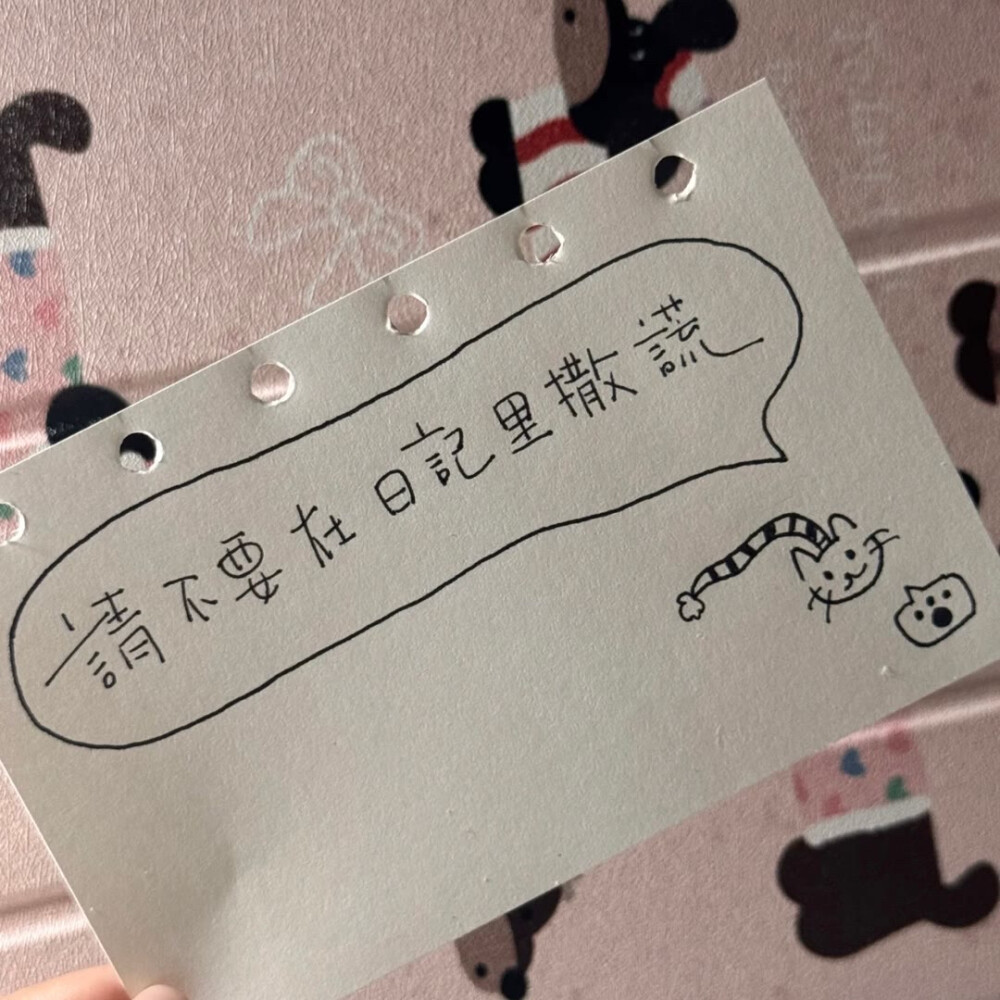 請不要在日記里撒謊